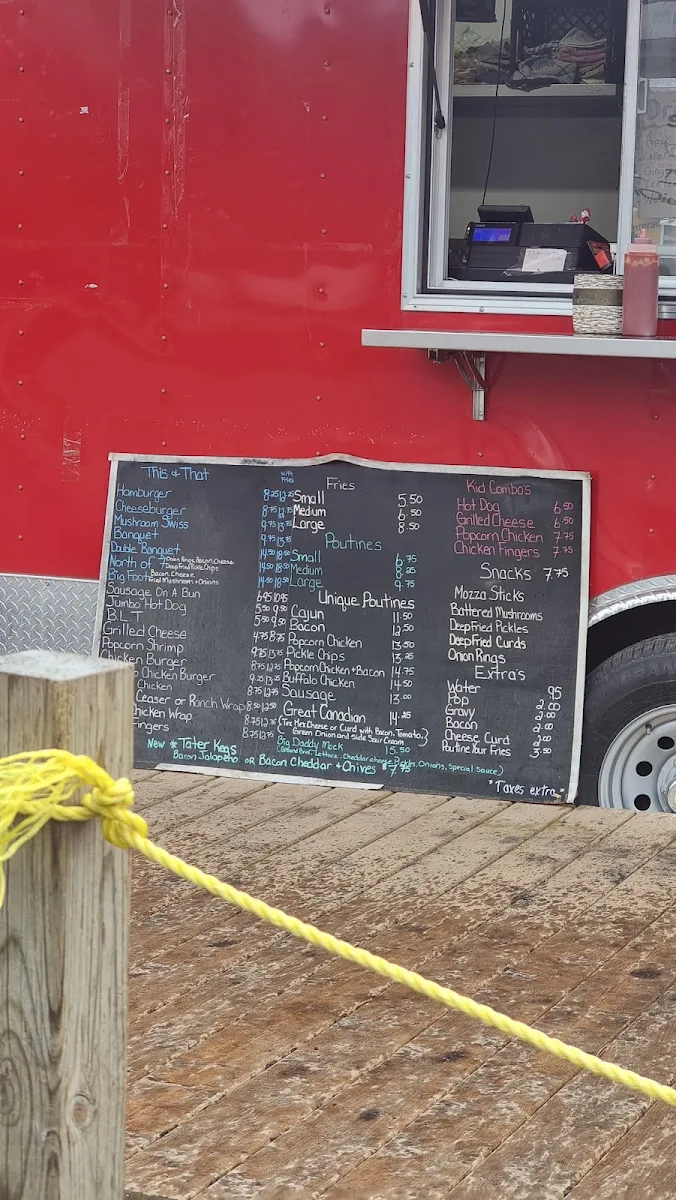 This & That with Fries
Hamburger 8.25 12.25
Cheeseburger 8.75 12.75
Mushroom Swiss 9.75 13.75
Banquet 9.75 13.75
Double Banquet 14.50 18.50
North of 7 Onion Rings, Bacon, Cheese Deep Fried Pickle Chips 14.50 18.50
Big Foot Bacon, Cheese Fried Mushroom + Onions 14.50 18.50
Sausage On A Bun 6.95 10.95
Jumbo Hot Dog 5.50 9.50
B.L.T 5.50 9.50
Grilled Cheese 4.75 8.75
Popcorn Shrimp 9.75 13.75
Chicken Burger 8.75 12.75
Chicken Burger 9.25 13.25
Chicken 8.75 12.75
Ceaser or Ranch Wrap 8.50 12.50
Chicken Wrap 8.75 12.75
Fingers 8.75 12.75
New * Tater Kegs
Bacon Jalapeño or Bacon Cheddar + Chives 8 7.75
Fries
Small 5.50
Medium 6.50
Large 8.50
Poutines
Small 6.75
Medium 8.25
Large 9.75
Unique Poutines
Cajun 11.50
Bacon 12.50
Popcorn Chicken 13.50
Pickle Chips 13.25
Popcorn Chicken + Bacon 14.75
Buffalo Chicken 14.50
Sausage 13.00
Great Canadian 14.25
(Tex Mex Cheese or Curd with Bacon, Tomato,
Green Onion and side Sour Cream)
Big Daddy Mack 15.50
(Ground Beef, Lettuce, Cheddar cheese, Pickles, Onions, Special Sauce)
Kid Combo's
Hot Dog 6.50
Grilled Cheese 6.50
Popcorn Chicken 7.75
Chicken Fingers 7.75
Snacks 7.75
Mozza Sticks
Battered Mushrooms
Deep Fried Pickles
Deep Fried Curds
Onion Rings
Extra's
Water .95
Pop 2.00
Gravy 2.00
Bacon 2.00
Cheese Curd 2.00
Poutine Your Fries 3.50
*Taxes extra*